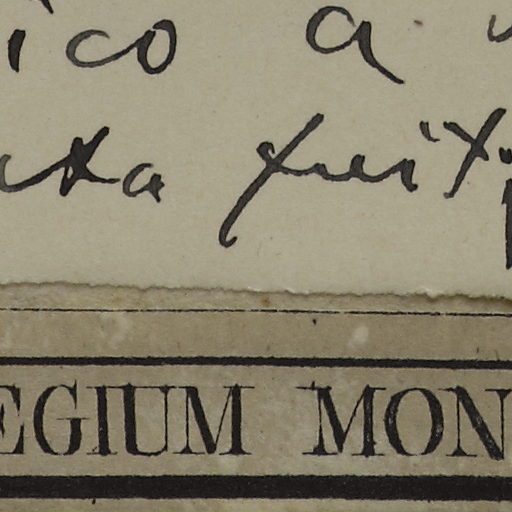 ico a
ta fuit
EGIUM MON